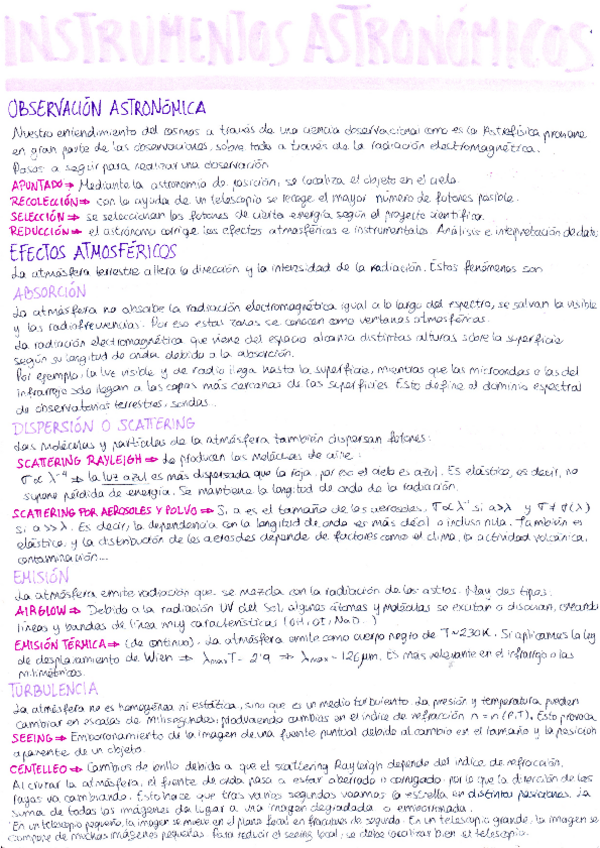 INSTRUMENTOS ASTRONÓMICOS
OBSERVACIÓN ASTRONÓMICA
Nuestro entendimiento del cosmos a través de una ciencia observacional como es la Astrofísica proviene
en gran parte de las observaciones, sobre todo a través de la radiación electromagnética.
Pasos a seguir para realizar una observación
APUNTADO ⇒ Mediante la astronomía de posición, se localiza el objeto en el cielo.
RECOLECCIÓN ⇒ con la ayuda de un telescopio se recoge el mayor número de fotones posible.
SELECCIÓN ⇒ se seleccionan los fotones de cierta energía según el proyecto científico.
REDUCCIÓN ⇒ el astrónomo corrige los efectos atmosféricos e instrumentales. Análisis e interpretación de datos
EFECTOS ATMOSFÉRICOS
La atmósfera terrestre altera la dirección y la intensidad de la radiación. Estos fenómenos son
ABSORCIÓN
La atmósfera no absorbe la radiación electromagnética igual a lo largo del espectro, se salvan la visible
y las radiofrecuencias. Por eso estas zonas se conocen como ventanas atmosféricas.
La radiación electromagnética que viene del espacio alcanza distintas alturas sobre la superficie
según su longitud de onda debido a la absorción.
Por ejemplo, la luz visible y de radio llega hasta la superficie, mientras que las microondas o las del
infrarrojo solo llegan a las capas más cercanas de las superficies. Esto define el dominio espectral
de observatorios terrestres, sondas...
DISPERSIÓN O SCATTERING
Las moléculas y partículas de la atmósfera también dispersan fotones:
SCATTERING RAYLEIGH ⇒ Lo producen las moléculas de aire:
σ ∝ λ⁻⁴ ⇒ la luz azul es más dispersada que la roja. por eso el cielo es azul. Es elástico, es decir, no
supone pérdida de energía. Se mantiene la longitud de onda de la radiación.
SCATTERING POR AEROSOLES Y POLVO ⇒ Si a es el tamaño de los aerosoles, σ ∝ λ⁻¹ si a>λ y σ ≠ σ(λ)
si a >> λ. Es decir, la dependencia con la longitud de onda es más débil o incluso nula. También es
elástico, y la distribución de los aerosoles depende de factores como el clima, la actividad volcánica,
contaminación...
EMISIÓN
La atmósfera emite radiación que se mezcla con la radiación de los astros. Hay dos tipos.
AIRGLOW ⇒ Debido a la radiación UV del Sol, algunos átomos y moléculas se excitan o disocian, creando
líneas y bandas de línea muy características (OH, OI, NaD...)
EMISIÓN TÉRMICA ⇒ (de continuo). La atmósfera emite como cuerpo negro de T~230K. Si aplicamos la ley
de desplazamiento de Wien ⇒ λmax T = 2'9 ⇒ λmax ~ 12.6 μm. Es más relevante en el infrarrojo o las
milimétricas.
TURBULENCIA
La atmósfera no es homogénea ni estática, sino que es un medio turbulento. La presión y temperatura pueden
cambiar en escalas de milisegundos, produciendo cambios en el índice de refracción n = n(P,T). Esto provoca
SEEING ⇒ Emborronamiento de la imagen de una fuente puntual debido al cambio en el tamaño y la posición
aparente de un objeto.
CENTELLEO ⇒ Cambios de brillo debido a que el scattering Rayleigh depende del índice de refracción.
Al cruzar la atmósfera, el frente de onda pasa a estar aberrado o corrugado por lo que la dirección de los
rayos va cambiando. Esto hace que tras varios segundos veamos la estrella en distintas posiciones. La
suma de todas las imágenes da lugar a una imagen degradada o emborronada.
En un telescopio pequeño, la imagen se mueve en el plano focal en fracciones de segundo. En un telescopio grande, la imagen se
compone de muchas imágenes pequeñas. Para reducir el seeing local, se debe localizar bien el telescopio.